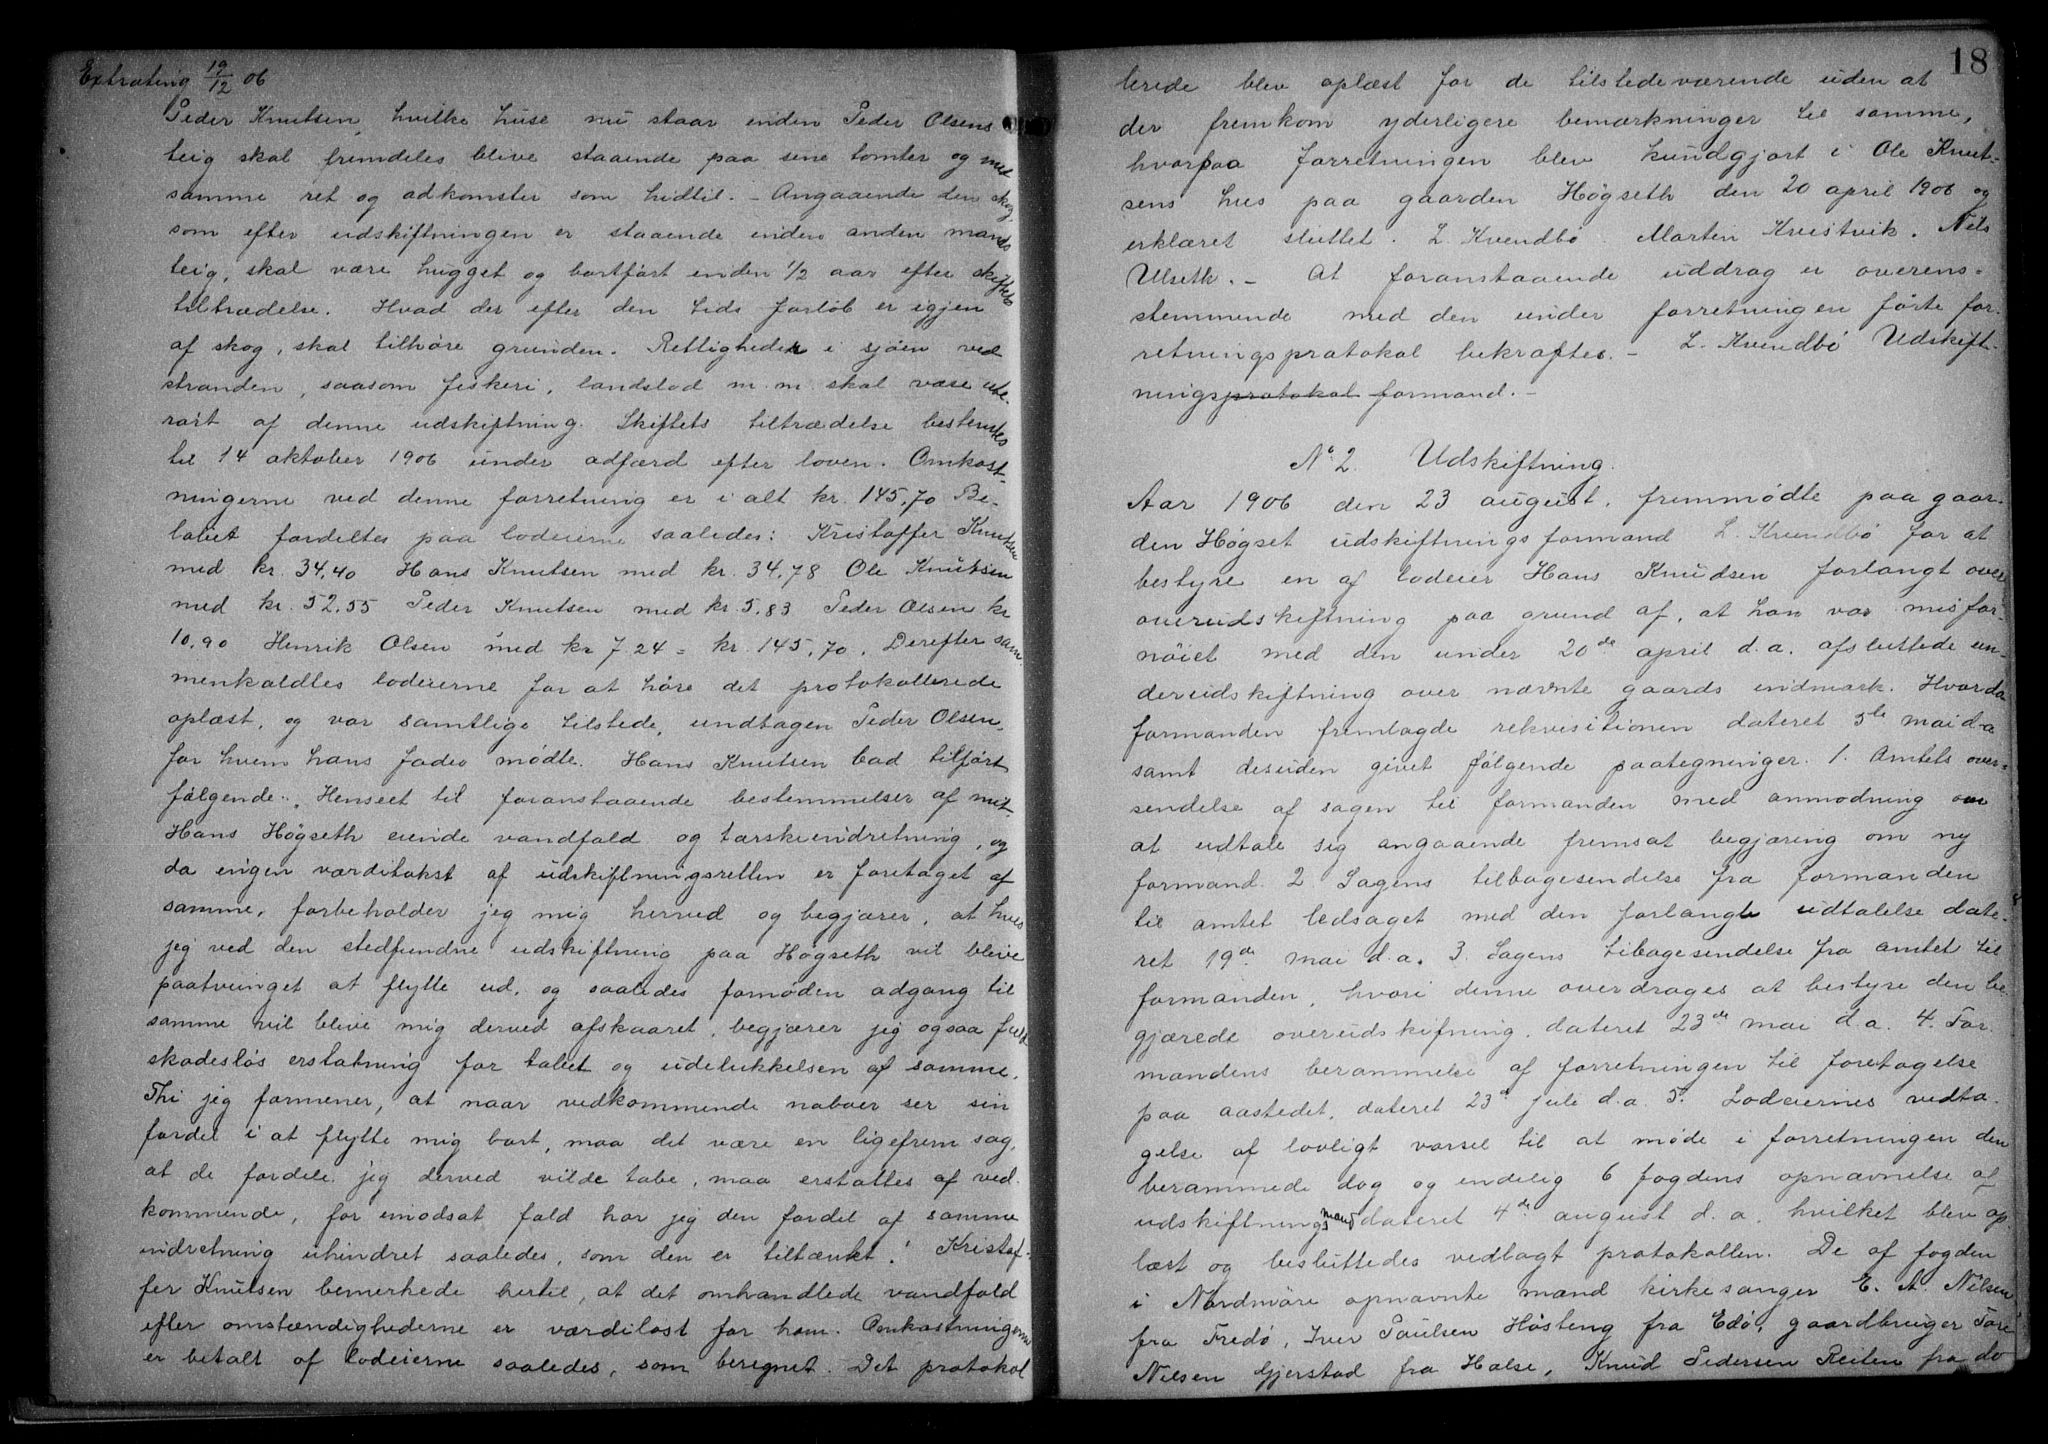 Extrating 19/12 06
Peder Knutsen, hvilke huse nu staar inden Peder Olsens
teig skal fremdeles blive staaende paa sine tomter og med
samme ret og adkomster som hidtil. – Angaaende den skog
som efter udskiftningen er staaende inden anden mands
teig, skal være hugget og bortført inden 1/2 aar efter skiftets
tiltrædelse. Hvad der efter den tids forløb er igjen
af skog, skal tilhøre grunden. Rettigheder i sjøen ved
stranden, saasom fiskeri, landstød m.m. skal være ube-
rørt af denne udskiftning. Skiftets tiltrædelse bestemtes
til 14 oktober 1906 under adfærd efter loven. Omkost-
ningerne ved denne forretning er i alt kr. 145,70 Be-
løbet fordeltes paa lodeierne saaledes: Kristoffer Knutsen
med kr. 34,40 Hans Knutsen med kr. 34,78 Ole Knutsen
med kr. 52.55 Peder Knutsen med kr. 5,83 Peder Olsen kr
10,90 Henrik Olsen med kr 7.24 = kr. 145,70. Derefter sam
menkaldtes lodeierne for at høre det protokollerede
oplæst, og var samtlige tilstede, undtagen Peder Olsen,
for hvem hans fader mødte. Hans Knutsen bad tilført
følgende: „Henseet til foranstaaende bestemmelser af mit
Hans Høgseth eiende vandfald og tærskeindretning, og
da ingen værditakst af udskiftningsretten er foretaget af
samme, forbeholder jeg mig herved og begjærer, at hvis
jeg ved den stedfundne udskiftning paa Høgseth vil blive
paatvunget at flytte ud, og saaledes fornøden adgang til
samme vil blive mig derved afskaaret, begjærer jeg ogsaa fuld
skadesløs erstatning for tabet og udelukkelsen af samme.
Thi jeg formener, at naar vedkommende naboer ser sin
fordel i at flytte mig bort, maa det være en ligefrem sag,
at de fordele jeg derved vilde tabe, maa erstattes af ved-
kommende, for imodsat fald har jeg den fordel af samme
indretning uhindret saaledes, som den er tiltænkt." Kristof-
fer Knutsen bemerkede hertil, at det omhandlede vandfald
efter omstændighederne er værdiløst for ham. Omkostningerne
er betalt af lodeierne saaledes, som beregnet. Det protokol
18
lerede blev oplæst for de tilstedeværende uden at
der fremkom yderligere bemærkninger til samme,
hvorpaa forretningen blev kundgjort i Ole Knut-
sens hus paa gaarden Høgseth den 20 april 1906 og
erklæret sluttet. L Kvendbø Marten Kvistvik. Nils
Ulseth. – At foranstaaende uddrag er overens-
stemmende med den under forretningen førte for-
retningsprotokol bekræftes. – L. Kvendbø Udskift-
ningsprotokol formand. –
No 2. Udskiftning.
Aar 1906 den 23 august, fremmødte paa gaar-
den Høgset udskiftningsformand L. Kvendbø for at
bestyre en af lodeier Hans Knudsen forlangt over
overudskiftning paa grund af, at han var misfor-
nøiet med den under 20de april d.a. afsluttede un-
derudskiftning over nævnte gaards indmark. Hvorda
formanden fremlagde rekvisitionen dateret 5te mai d.a
samt desuden givet følgende paategninger. 1. Amtets over-
sendelse af sagen til formanden med anmodning om
at udtale sig angaaende fremsat begjæring om ny
formand. 2 Sagens tilbagesendelse fra formanden
til amtet ledsaget med den forlangte udtalelse date-
ret 19de mai d.a. 3. Sagens tibagesendelse fra amtet til
formanden, hvori denne overdrages at bestyre den be
gjærede overudskifning, dateret 23de mai d.a. 4. For
mandens berammelse af forretningen til foretagelse
paa aastedet, dateret 23de juli d.a. 5. Lodeiernes vedta-
gelse af lovligt varsel til at møde i forretningen den
berammede dag og endelig 6 fogdens opnævnelse af
udskiftningsmænd dateret 4de august d.a. hvilket blev op-
læst og besluttedes vedlagt protokollen. De af fogden
i Nordmøre opnævnte mænd kirkesanger E. A. Nilsen
fra Fredø, Iver Paulsen Høsteng fra Edø, gaardbruger Tore
Nilsen Gjerstad fra Halse, Knud Pedersen Reiten fra do